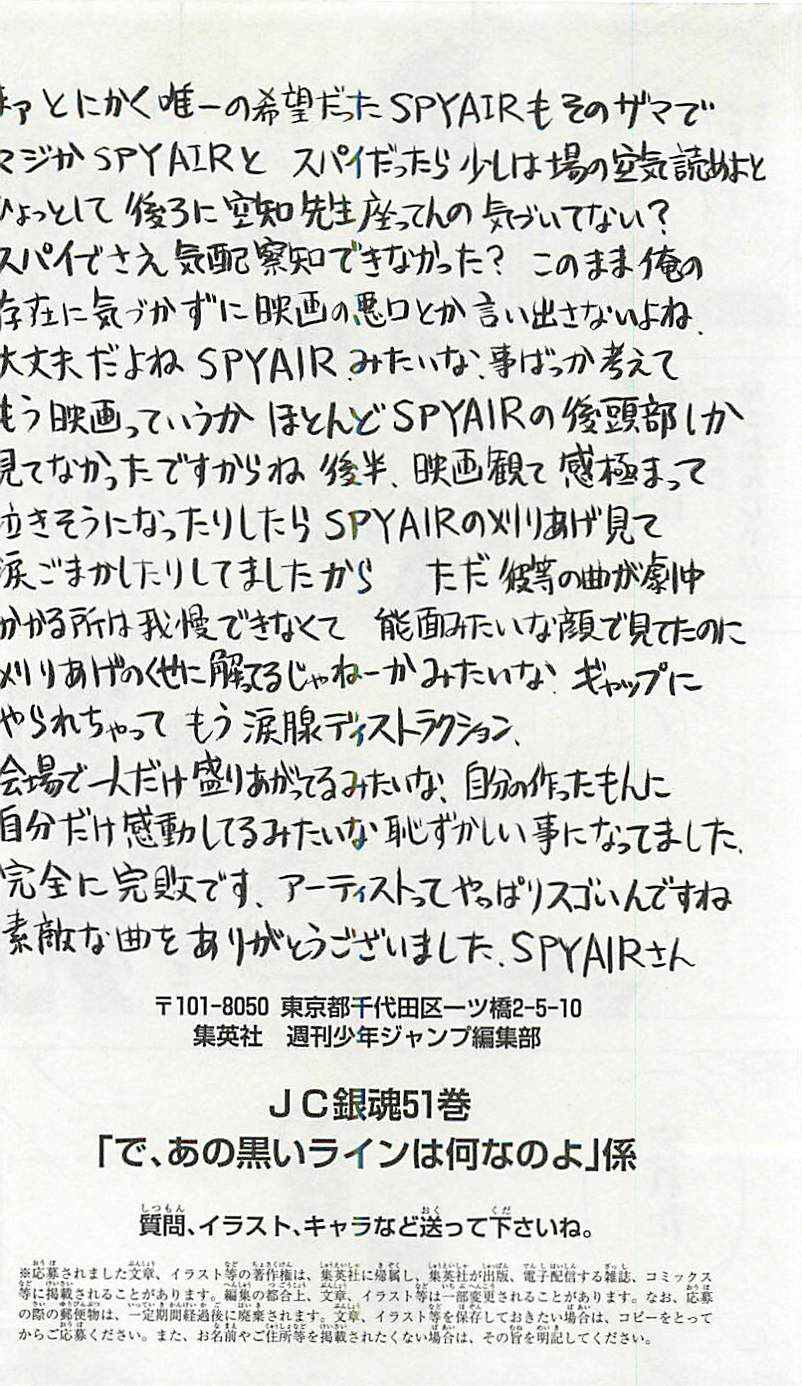 まァとにかく唯一の希望だったSPYAIRもそのザマで
マジかSPYAIRと スパイだったら少しは場の空気読めよと
ひょっとして後ろに空知先生座ってんの気づいてない?
スパイでさえ気配察知できなかった? このまま俺の
存在に気づかずに映画の悪口とか言い出さないよね、
大丈夫だよねSPYAIR、みたいな、事ばっか考えて
もう映画っていうかほとんどSPYAIRの後頭部しか
見てなかったですからね 後半、映画観て感極まって
泣きそうになったりしたらSPYAIRの刈りあげ見て
涙ごまかしたりしてましたから ただ彼等の曲が劇中
かかる所は我慢できなくて 能面みたいな顔で見てたのに
刈りあげのくせに解ってるじゃねーかみたいな、ギャップに
やられちゃって もう涙腺ディストラクション、
会場で一人だけ盛りあがってるみたいな、自分の作ったもんに
自分だけ感動してるみたいな恥ずかしい事になってました、
完全に完敗です、アーティストってやっぱりスゴいんですね
素敵な曲をありがとうございました、SPYAIRさん
〒101-8050 東京都千代田区一ツ橋2-5-10
集英社 週刊少年ジャンプ編集部
JC銀魂51巻
「で、あの黒いラインは何なのよ」係
質問、イラスト、キャラなど送って下さいね。
※応募されました文章、イラスト等の著作権は、集英社に帰属し、集英社が出版、電子配信する雑誌、コミックス
等に掲載されることがあります。編集の都合上、文章、イラスト等は一部変更されることがあります。なお、応募
の際の郵便物は、一定期間経過後に廃棄されます。文章、イラスト等を保存しておきたい場合は、コピーをとって
からご応募ください。また、お名前やご住所等を掲載されたくない場合は、その旨を明記してください。